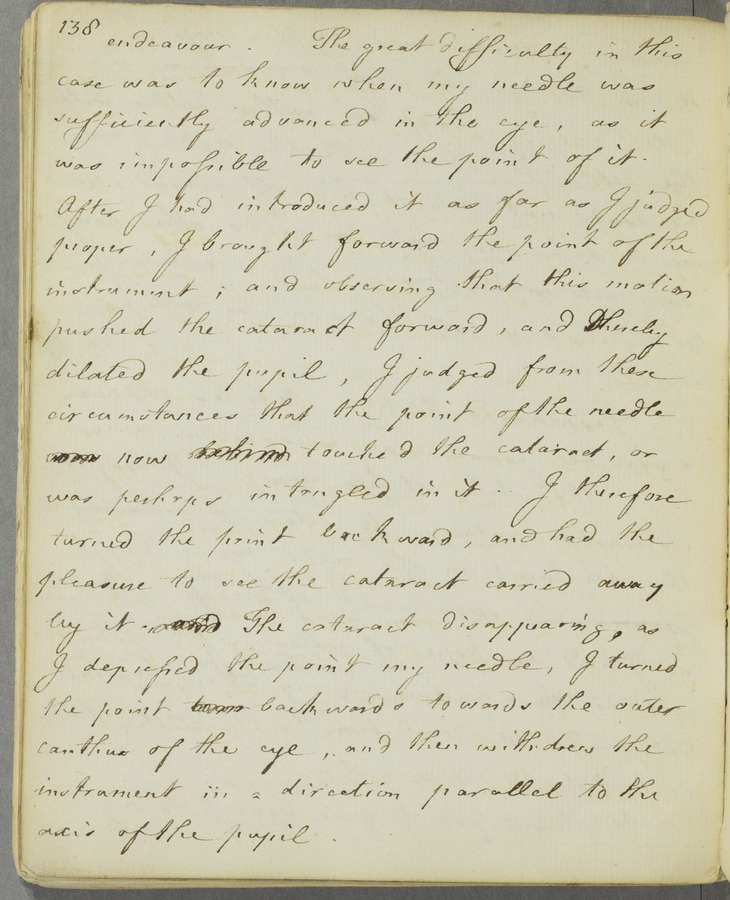 138
endeavour. The great difficulty in this
case was to know when my needle was
sufficiently advanced in the eye, as it
was impossible to see the point of it.
After I had introduced it as far as I judged
proper, I brought forward the point of the
instrument; and observing that this motion
pushed the cataract forward, and thereby
dilated the pupil, I judged from these
circumstances that the point of the needle
now touched the cataract, or
was perhaps intangled in it. I therefore
turned the point backward, and had the
pleasure to see the cataract carried away
by it. and The cataract disappearing, as
I depressed the point my needle, I turned
the point backwards towards the outer
canthus of the eye, and then withdrew the
instrument in a direction parallel to the
axis of the pupil.